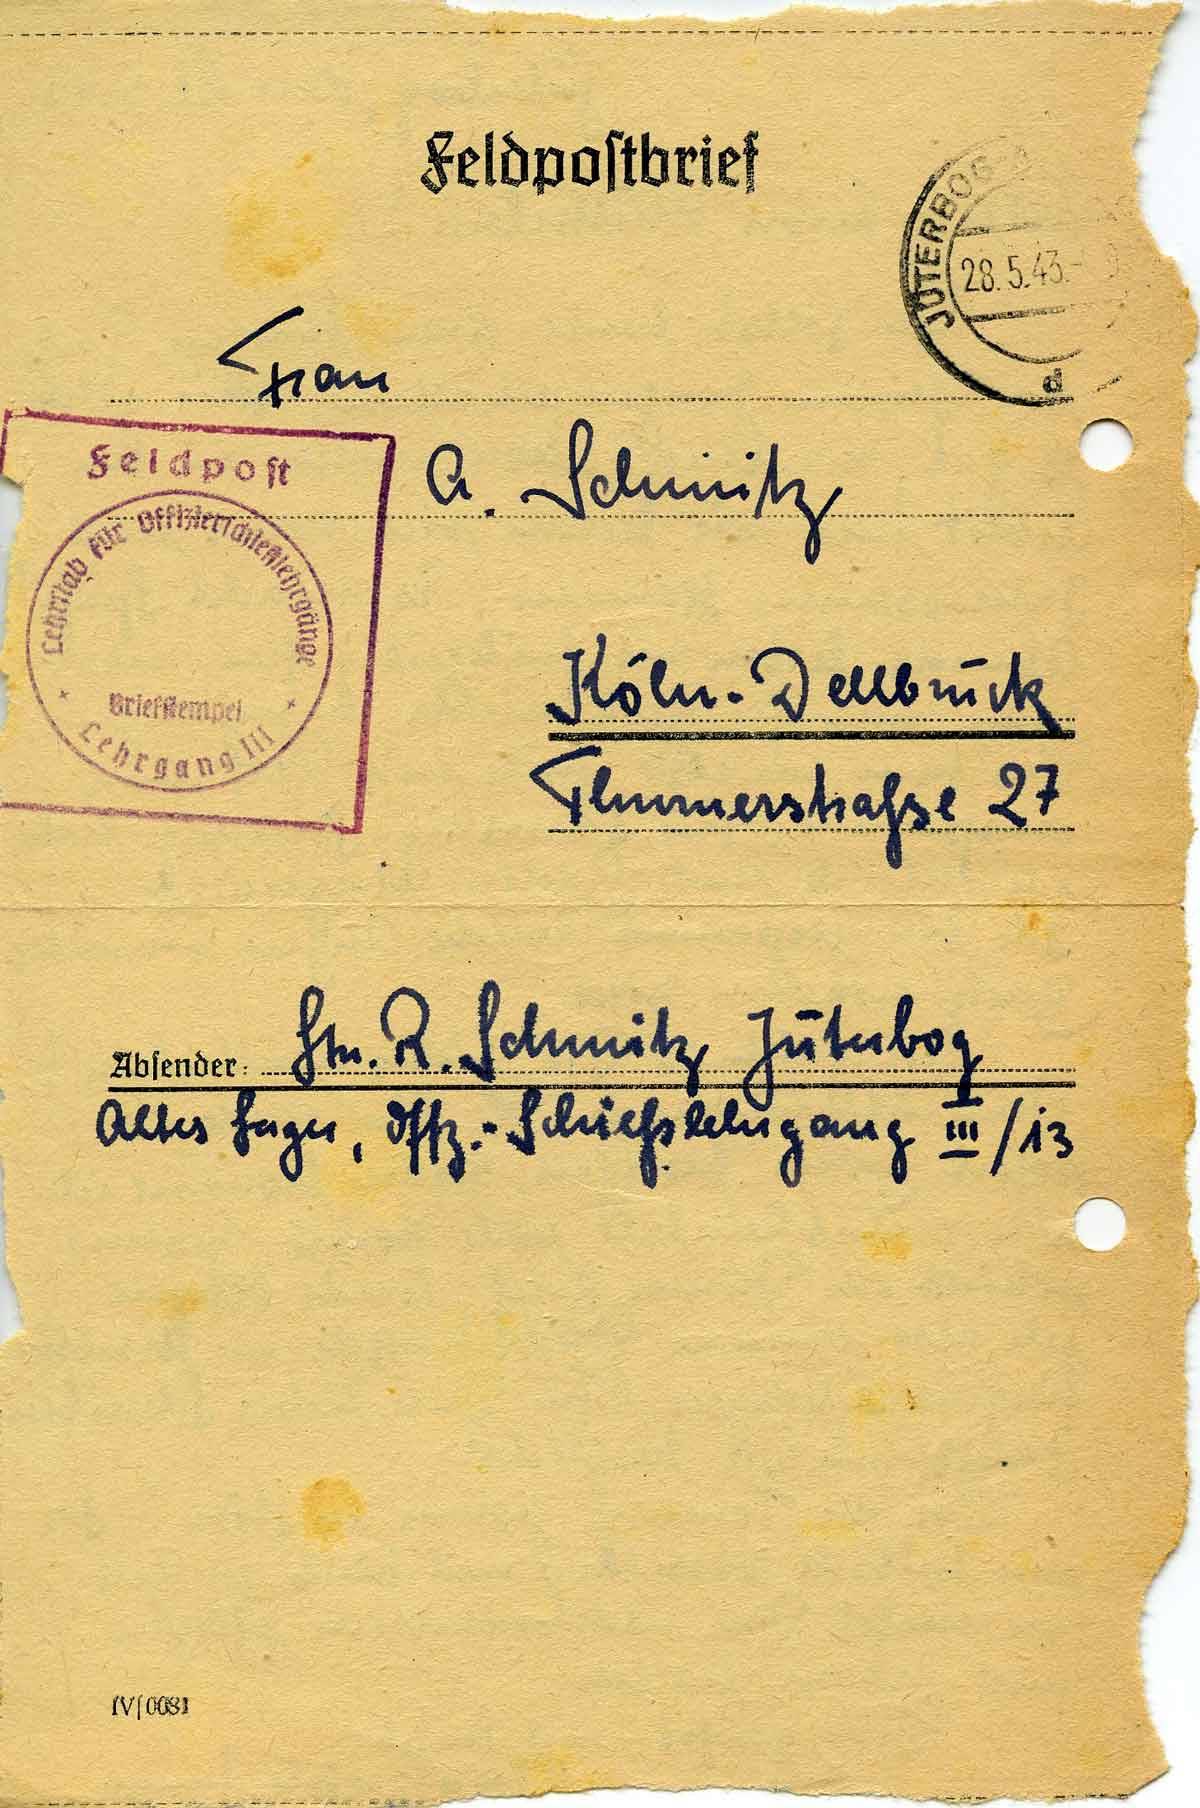 Feldpostbrief
JÜTERBOG
28.5.43.
d
Frau
A. Schmitz
Feldpost
Lehrstab für Offizierschießlehrgänge
Briefstempel
Lehrgang III
Köln-Dellbrück
Thurnerstraße 27
Absender: Ltn. R. Schmitz Jüterbog
Altes Lager, Offz.-Schießlehrgang III/13
IV/0081